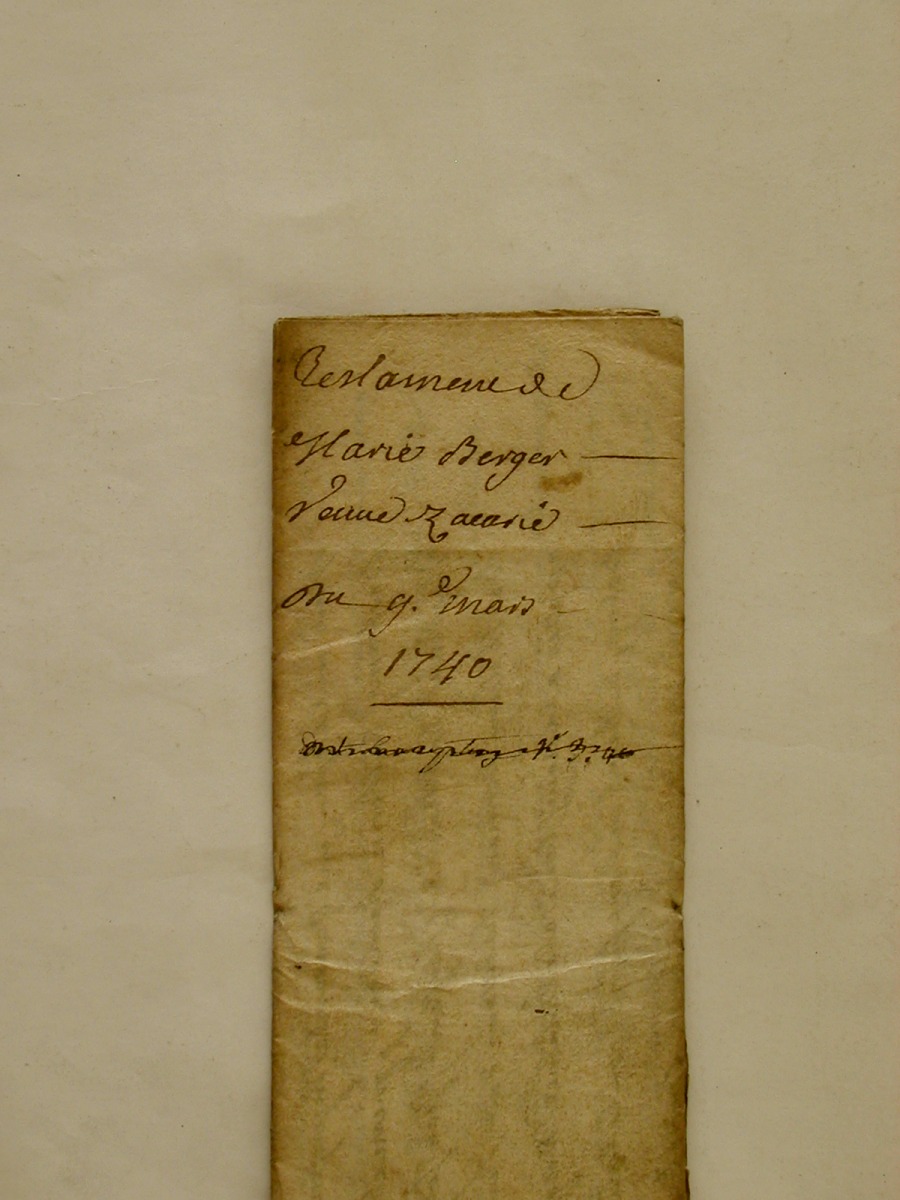 Testament de
Marie Berger
Veuue Zacarie
Du 9.e mars
1740